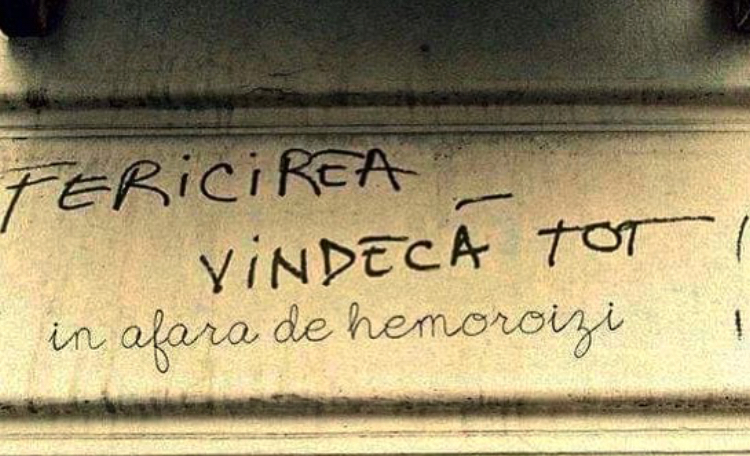 FERiCiREA
ViNDECĂ TOT !
in afara de hemoroizi